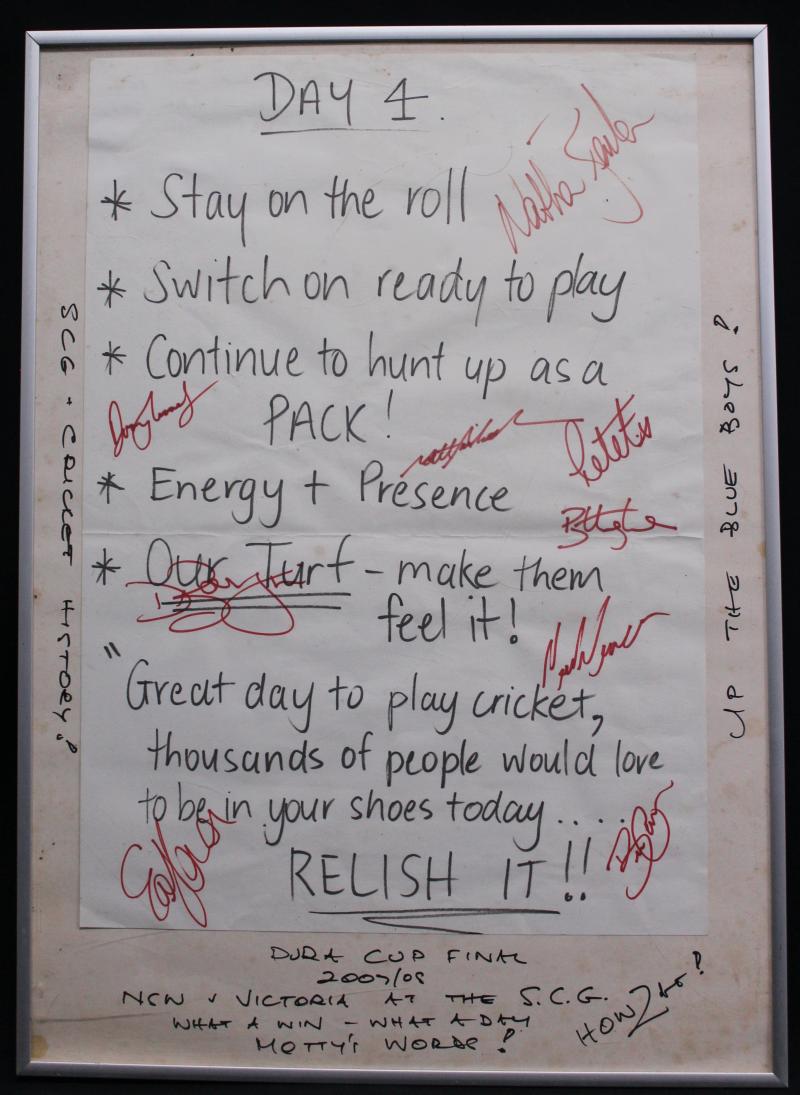 DAY 4.
* Stay on the roll
* Switch on ready to play
* Continue to hunt up as a
PACK!
* Energy + Presence
* Our Turf - make them
feel it!
"Great day to play cricket,
thousands of people would love
to be in your shoes today....
RELISH IT!!
SCG + CRICKET HISTORY!
UP THE BLUE BOYS!
PURA CUP FINAL
2007/08
NSW v VICTORIA AT THE S.C.G.
WHAT A WIN - WHAT A DAY
MOTTY'S WORDS!
HOWZAT!